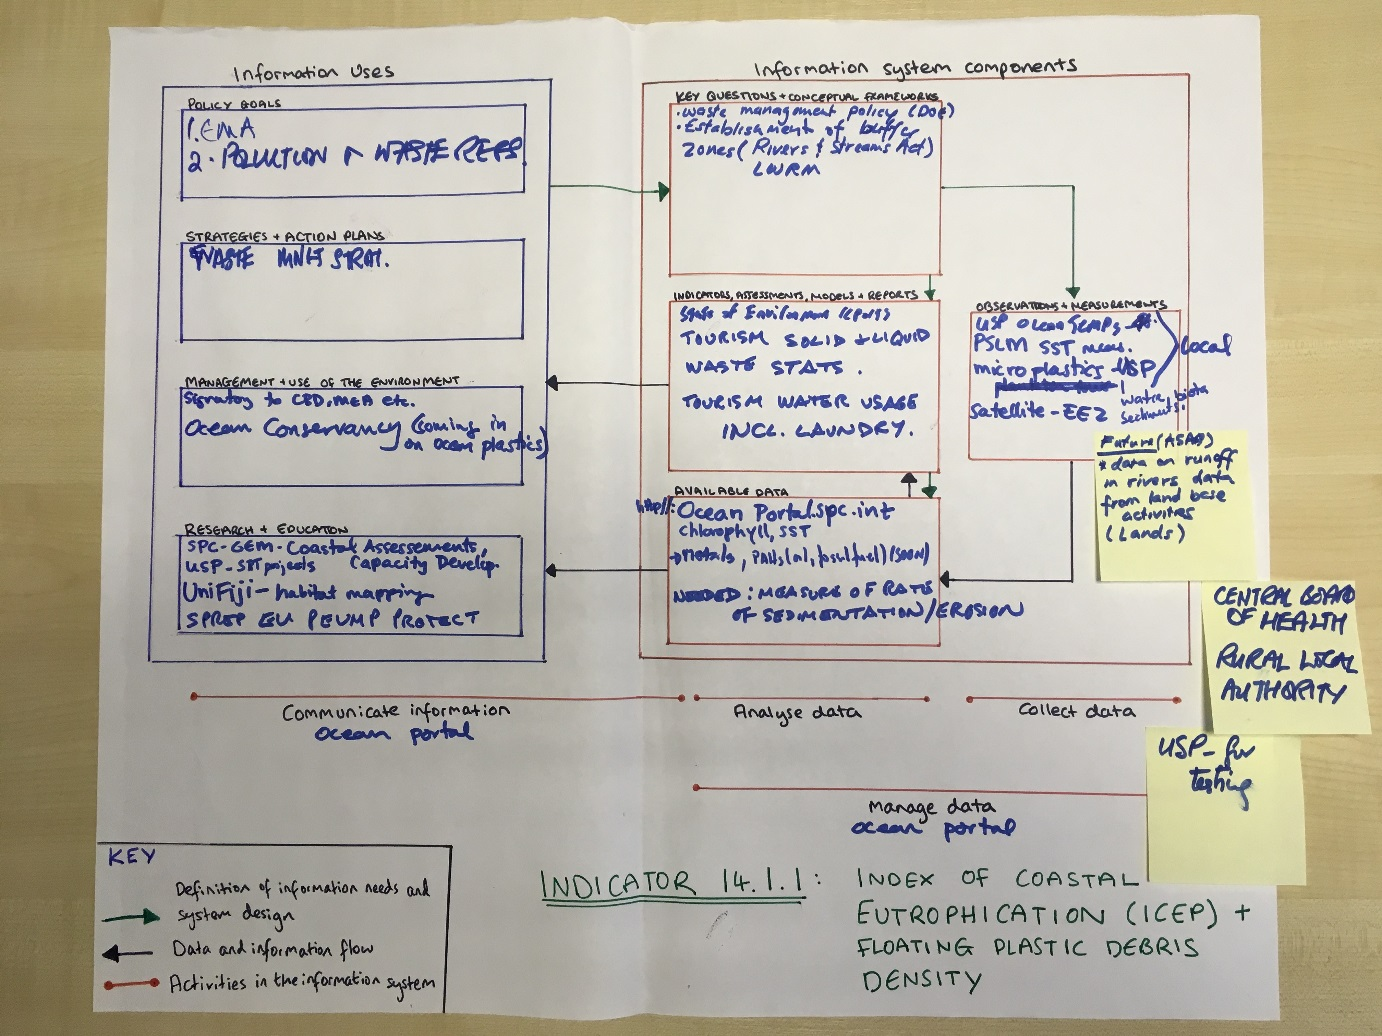 Information Uses
POLICY GOALS
1. EMA
2. POLLUTION N WASTE REGS
STRATEGIES + ACTION PLANS
WASTE MNGT STRAT.
MANAGEMENT + USE OF THE ENVIRONMENT
Signatory to CBD, MEA etc.
Ocean Conservancy (coming in
on ocean plastics)
RESEARCH + EDUCATION
SPC-GEM-Coastal Assessements,
USP-SRT projects Capacity Develop.
UniFiji - habitat mapping
SPREP EU PEUMP PROTECT
Information system components
KEY QUESTIONS + CONCEPTUAL FRAMEWORKS
• waste management policy (DoE)
• Establishment of buffer
Zones (Rivers & Streams Act)
LWRM
INDICATORS, ASSESSMENTS, MODELS + REPORTS
State of Environment Reports
TOURISM SOLID + LIQUID
WASTE STATS.
TOURISM WATER USAGE
INCL. LAUNDRY.
AVAILABLE DATA
http//: Ocean Portal.spc.int
chlorophyll, SST
→ Metals, PAHs (oil, fossil fuel) (SOON)
NEEDED: MEASURE OF RATE
OF SEDIMENTATION/EROSION
OBSERVATIONS + MEASUREMENTS
USP Ocean Temps
PSLM SST meas.
Local
microplastics - USP
water, biota
sediments.
Satellite - EEZ
Future (ASAP)
* data on runoff
in rivers data
from land base
activities
(Lands)
CENTRAL BOARD
OF HEALTH
RURAL LOCAL
AUTHORITY
USP - for
testing
Communicate information
ocean portal
Analyse data
Collect data
Manage data
ocean portal
KEY
Definition of information needs and
system design
Data and information flow
Activities in the information system
INDICATOR 14.1.1: INDEX OF COASTAL
EUTROPHICATION (ICEP) +
FLOATING PLASTIC DEBRIS
DENSITY